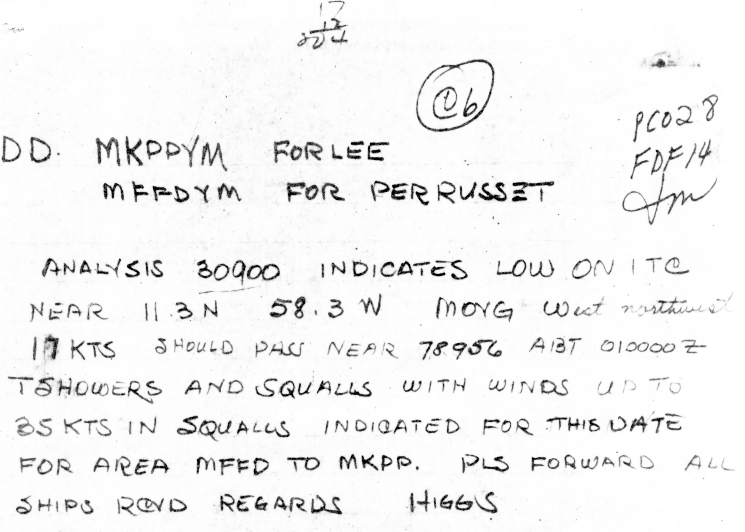 17
12
204
@6
PCO28
FDF14
DD. MKPPYM FOR LEE
MFFDYM FOR PERRUSSET
ANALYSIS 30900 INDICATES LOW ON ITC
NEAR 11.3 N 58.3 W MOVG West northwest
17 KTS SHOULD PASS NEAR 78956 ABT 010000Z
TSHOWERS AND SQUALLS WITH WINDS UP TO
35 KTS IN SQUALLS INDICATED FOR THIS DATE
FOR AREA MFFD TO MKPP. PLS FORWARD ALL
SHIPS RCVD REGARDS HIGGS